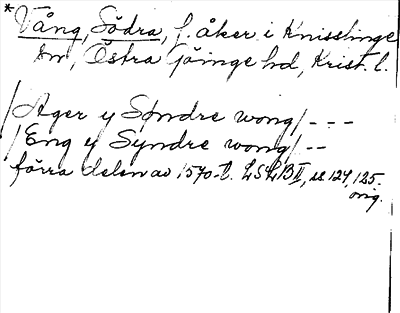 *Vång, Södra, f. åker i Knisslinge
sn, Östra Göinge hd, Krist. l.
/Ager y Søndre wong/ - - -
/Eng y Syndre wong/ - -
förra delen av 1570-t. LSLB II, s. 124, 125.
orig.